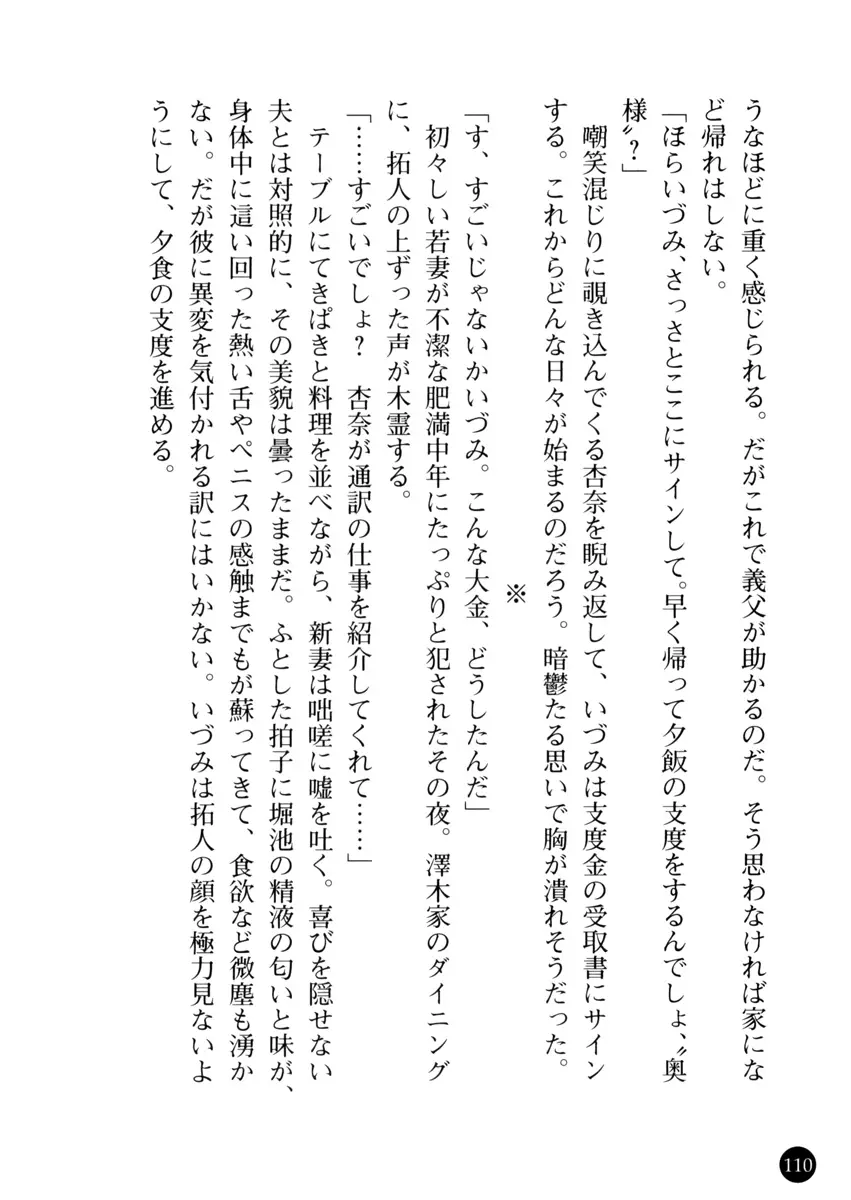 うなほどに重く感じられる。だがこれで義父が助かるのだ。そう思わなければ家にな
ど帰れはしない。
「ほらいづみ、さっさとここにサインして。早く帰って夕飯の支度をするんでしょ、〝奥
様〟？」
嘲笑混じりに覗き込んでくる杏奈を睨み返して、いづみは支度金の受取書にサイン
する。これからどんな日々が始まるのだろう。暗鬱たる思いで胸が潰れそうだった。
※
「す、すごいじゃないかいづみ。こんな大金、どうしたんだ」
初々しい若妻が不潔な肥満中年にたっぷりと犯されたその夜。澤木家のダイニング
に、拓人の上ずった声が木霊する。
「……すごいでしょ？　杏奈が通訳の仕事を紹介してくれて……」
テーブルにてきぱきと料理を並べながら、新妻は咄嗟に嘘を吐く。喜びを隠せない
夫とは対照的に、その美貌は曇ったままだ。ふとした拍子に堀池の精液の匂いと味が、
身体中に這い回った熱い舌やペニスの感触までもが蘇ってきて、食欲など微塵も湧か
ない。だが彼に異変を気付かれる訳にはいかない。いづみは拓人の顔を極力見ないよ
うにして、夕食の支度を進める。
110